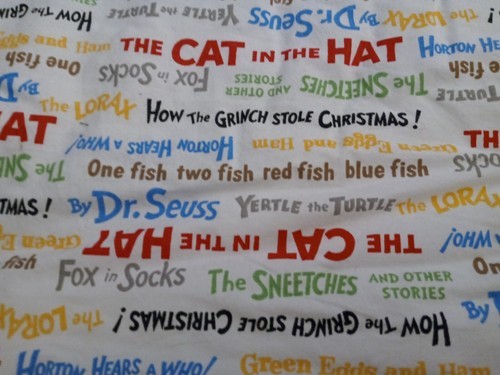 How The GRINCH YERTLE the TURTLE By Dr. Seuss The LORAX
Eggs and Ham THE CAT IN THE HAT HORTON HE
One fish Fox in Socks The SNEETCHES AND OTHER STORIES TURTLE
By The LORAX How The GRINCH STOLE CHRISTMAS!
AT HORTON HEARS A WHO! Green Eggs and Ham TH
The SNE One fish two fish red fish blue fish Socks
TMAS! By Dr. Seuss YERTLE the TURTLE The LORAX
Green E THE CAT IN THE HAT HOW
fish Fox in Socks The SNEETCHES AND OTHER STORIES On
The LORAX How The GRINCH STOLE CHRISTMAS! By
HORTON HEARS A WHO! Green Eggs and Ham